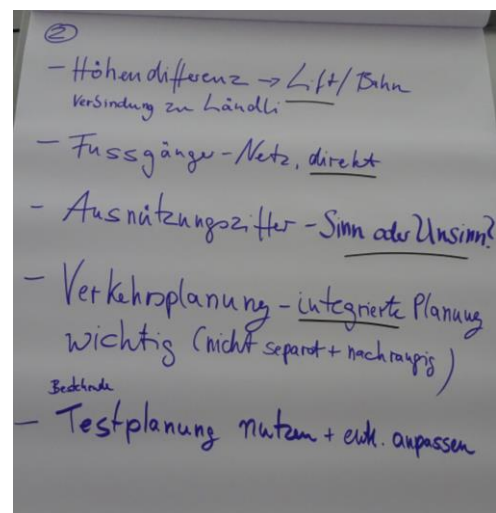 ②
- Höhendifferenz → Lift/Bahn
Verbindung zu Ländli
- Fussgänger-Netz, direkt
- Ausnützungsziffer - Sinn oder Unsinn?
- Verkehrsplanung - integrierte Planung
wichtig (nicht separat + nachrangig)
- Testplanung nutzen + evtl. anpassen